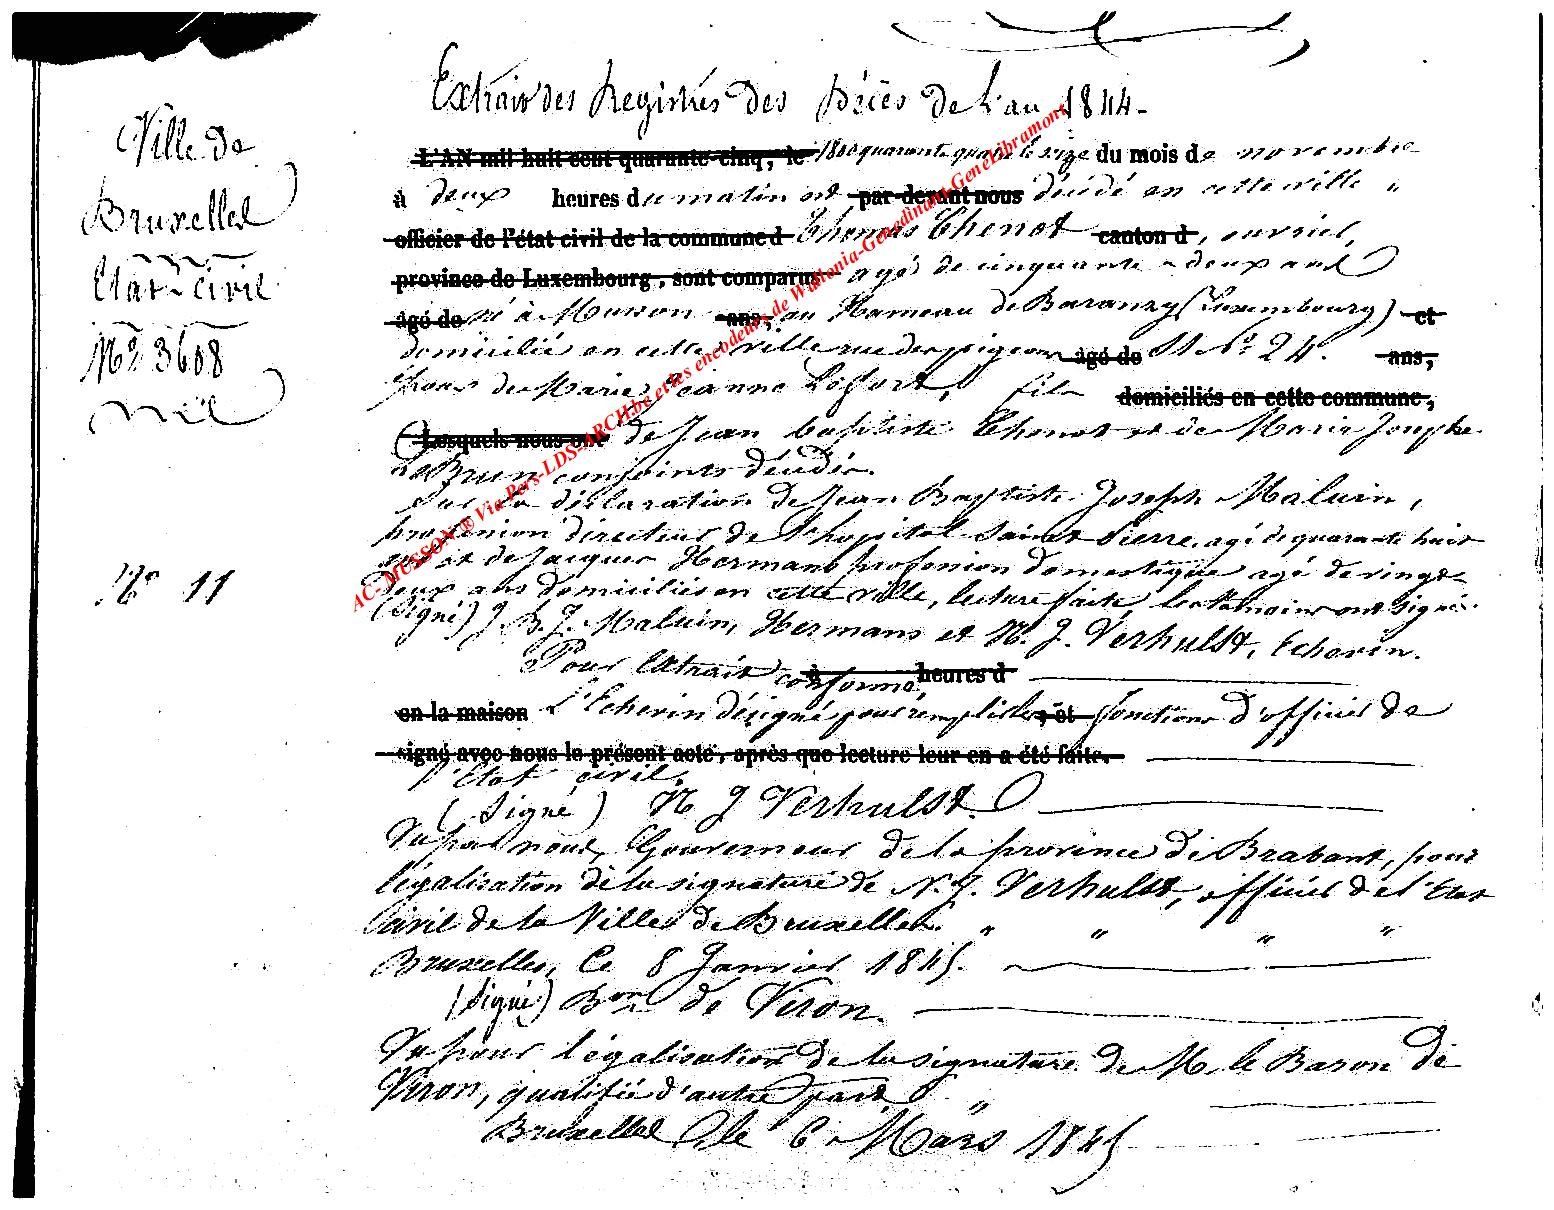 Extrait des Registres des Décès de l'an 1844-
Ville de
Bruxelles
Etat-civil
No. 3608
No 11
L'AN mil huit cent quarante-cinq, le 1800 quarante quatre le seize du mois de novembre
à deux heures du matin est par devant nous décédé en cette ville "
officier de l'état civil de la commune d Thomas Thenot canton d, ouvrier,
province de Luxembourg, sont comparus agé de cinquante-deux ans
âgé de né à Musson ans, au Hameau de Baranzy (Luxembourg) et
domicilié en cette ville rue des pigeons âgé de No 24. ans,
époux de Marie Jeanne Lefort, fils domiciliés en cette commune,
Lesquels nous ont de Jean baptiste Thenot et de Marie Josephe
Le Brun conjoints décédés.
Sur la déclaration de Jean Baptiste Joseph Maluin,
profession directeur de l'hopital Saint Pierre, agé de quarante huit
ans et de Jacques Hermans profession domestique agé de vingt-
deux ans domiciliés en cette ville, lecture faite les témoins ont signé.
(Signé) J. B. J. Maluin, Hermans et N. J. Verhulst, Echevin.
Pour extrait conforme à heures d
en la maison L'Echevin désigné pour remplir les, et fonctions d'officier de
signé avec nous le présent acte, après que lecture leur en a été faite.
l'Etat civil.
(Signé) N J Verhulst.
Vu par nous, Gouverneur de la province de Brabant, pour
légalisation de la signature de N. J. Verhulst, officier de l'Etat
civil de la Ville de Bruxelles. " " " "
Bruxelles, le 8 Janvier 1845.
(Signé) Bon de Viron.
Vu pour légalisation de la signature de M. le Baron de
Viron, qualifié d'autre part "
Bruxelles le 6 Mars 1845
AC-MUSSON ® Via Pers-LDS-ARCH.be et les encodeurs de Wallonia-Genedinant-GeneLibramont